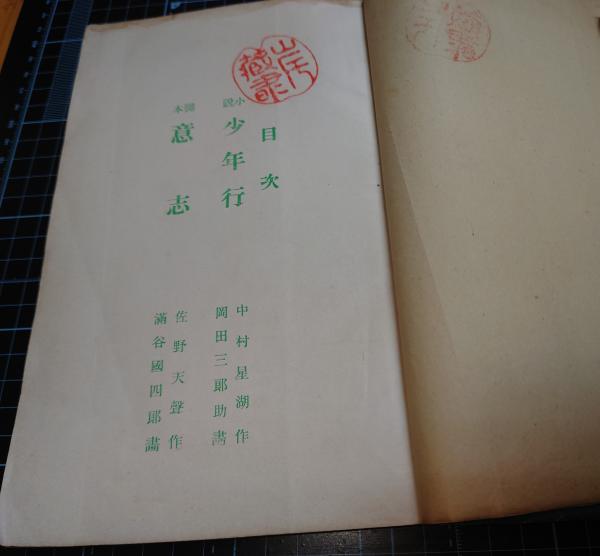 目次
小説
少年行
中村星湖作
岡田三郎助畵
脚本
意志
佐野天聲作
滿谷國四郎畵